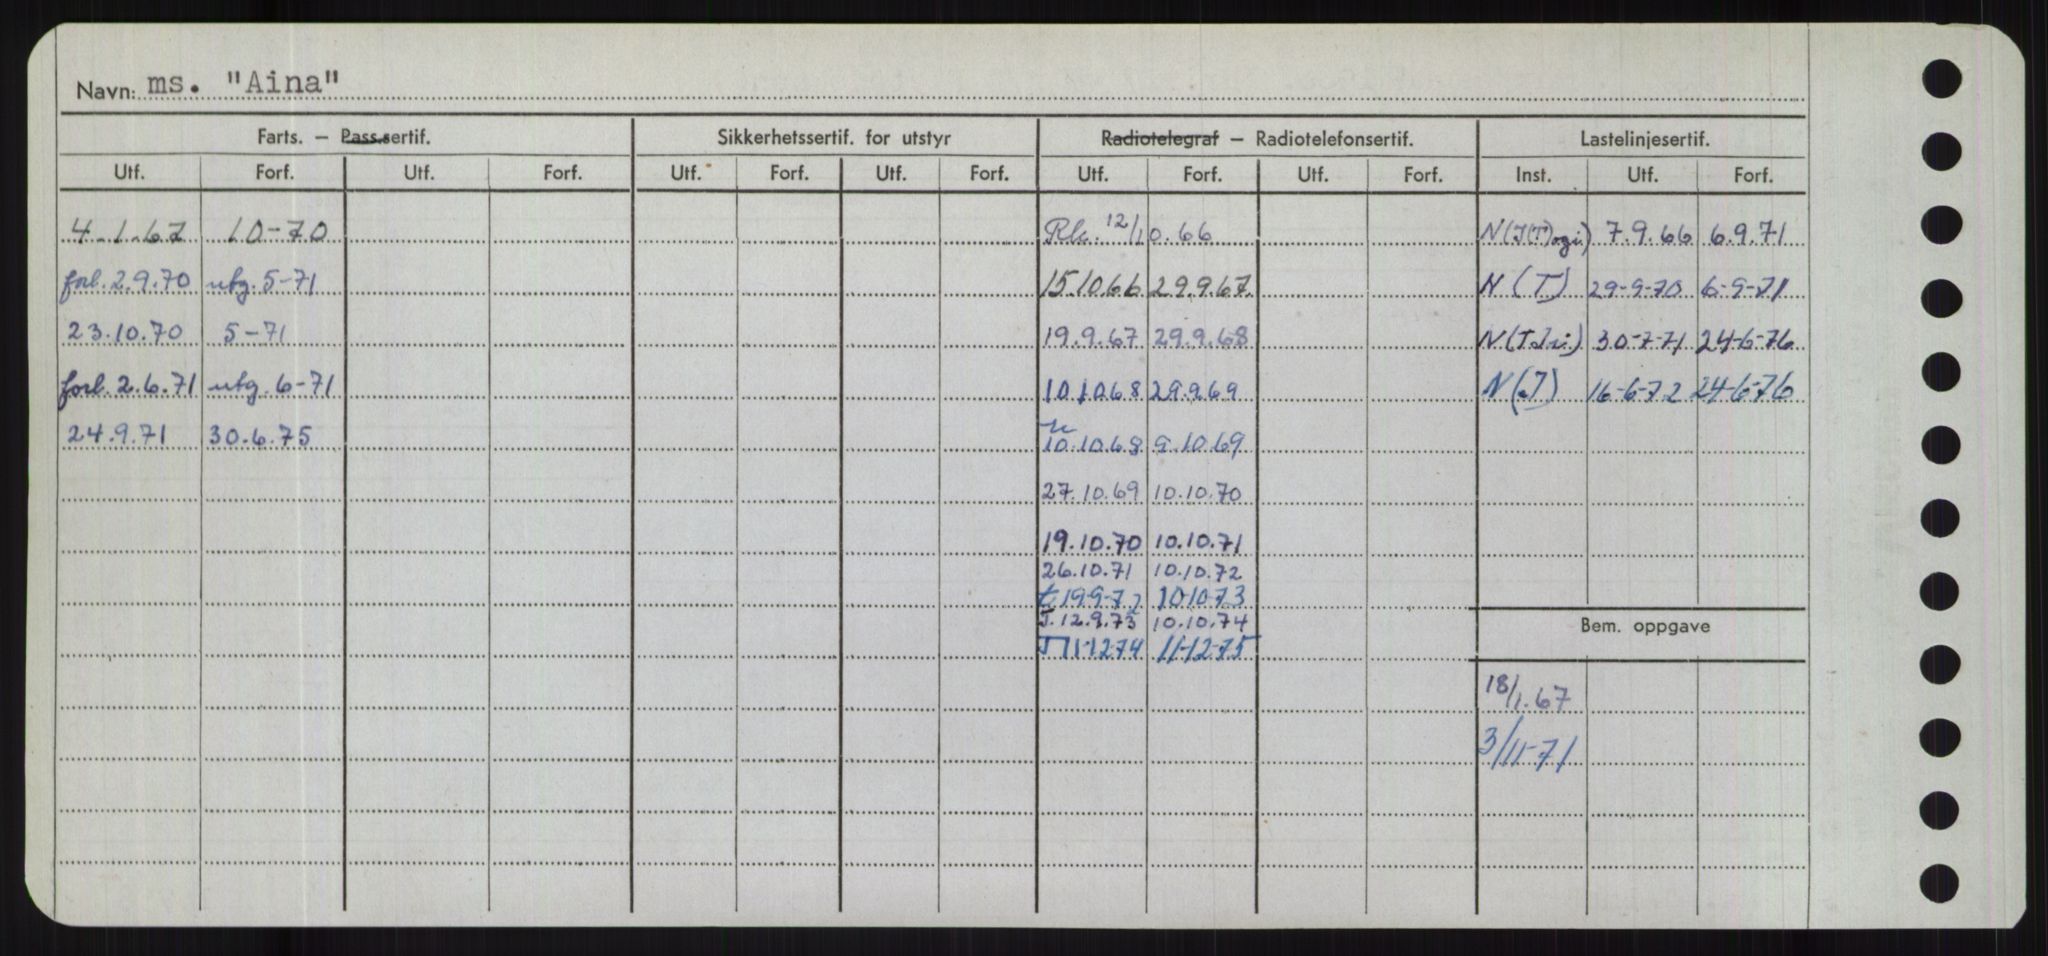 Navn: ms. "Aina"
Farts. — Pass.sertif. Sikkerhetssertif. for utstyr Radiotelegraf — Radiotelefonsertif. Lastelinjesertif.
Utf. Forf. Utf. Forf. Utf. Forf. Utf. Forf. Utf. Forf. Utf. Forf. Inst. Utf. Forf.
4.1.67 10-70 12/10.66 7.9.66 6.9.71
forl. 2.9.70 utg. 5-71 15.10.66 29.9.67 N (T) 29-9-70 6-9-71
23.10.70 5-71 19.9.67 29.9.68 30-7-71 24-6-76
forl. 2.6.71 utg. 6-71 10.10.68 29.9.69 N (J) 16-6-72 24-6-76
24.9.71 30.6.75 10.10.68 9.10.69
27.10.69 10.10.70
19.10.70 10.10.71
26.10.71 10.10.72
t 19-9-72 10-10-73
J. 12.9.73 10.10.74
J 11-12-74 11-12-75
Bem. oppgave
18/1.67
3/11-71